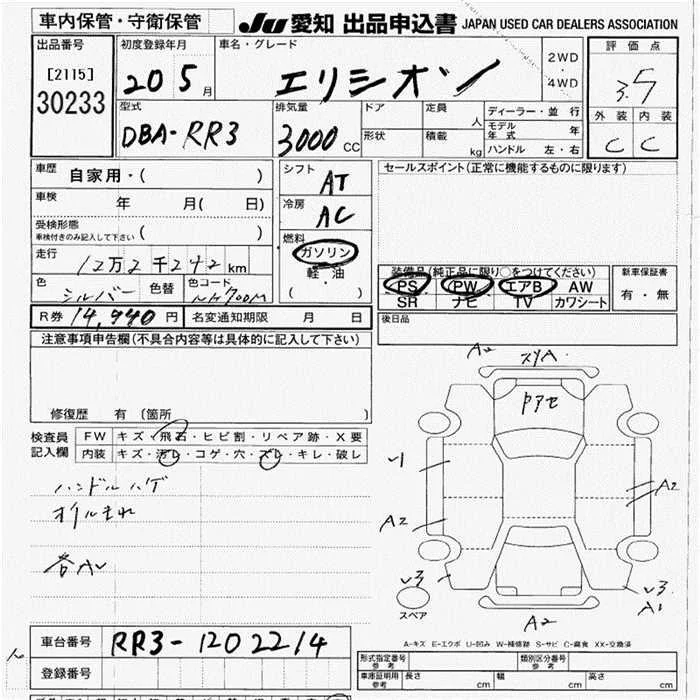 車内保管・守衛保管
JU 愛知 出品申込書 JAPAN USED CAR DEALERS ASSOCIATION
出品番号 初度登録年月 車名・グレード 評価点
[2115]
30233
20 5月 エリシオン 2WD・4WD 3.5
型式 排気量 ドア 定員 人 ディーラー・並行 外装 内装
DBA-RR3 3000cc 形状 積載 kg モデル年式 年 C C
ハンドル 左・右
車歴 自家用・( ) シフト AT セールスポイント(正常に機能するものに限ります)
車検 年 月( 日) 冷房 AC
受検形態
車検付きのみ記入して下さい ( ) 燃料 ガソリン・軽油
走行 12万2千242km ( )
装備品(純正品に限り○をつけてください) 新車保証書
PS PW エアB AW 有・無
SR ナビ TV カワシート
色 シルバー 色替 色コード NH700M
R券 14,940円 名変通知期限 月 日 後日品
注意事項申告欄(不具合内容等は具体的に記入して下さい)
修復歴 有 (箇所 )
検査員記入欄 FW キズ・飛石・ヒビ割・リペア跡・X要
内装 キズ・汚レ・コゲ・穴・スレ・キレ・破レ
ハンドルハゲ
オイルもれ
各AU
A2
Pアセ
A2
A2
A2
スペア
A1
A-キズ E-エクボ U-凹み W-補修跡 S-サビ C-腐食 XX-交換済
車台番号 RR3-1202214
登録番号
形式指定番号 参考 類別区分番号 参考
車庫証明用 参考 長さ cm 幅 cm 高さ cm